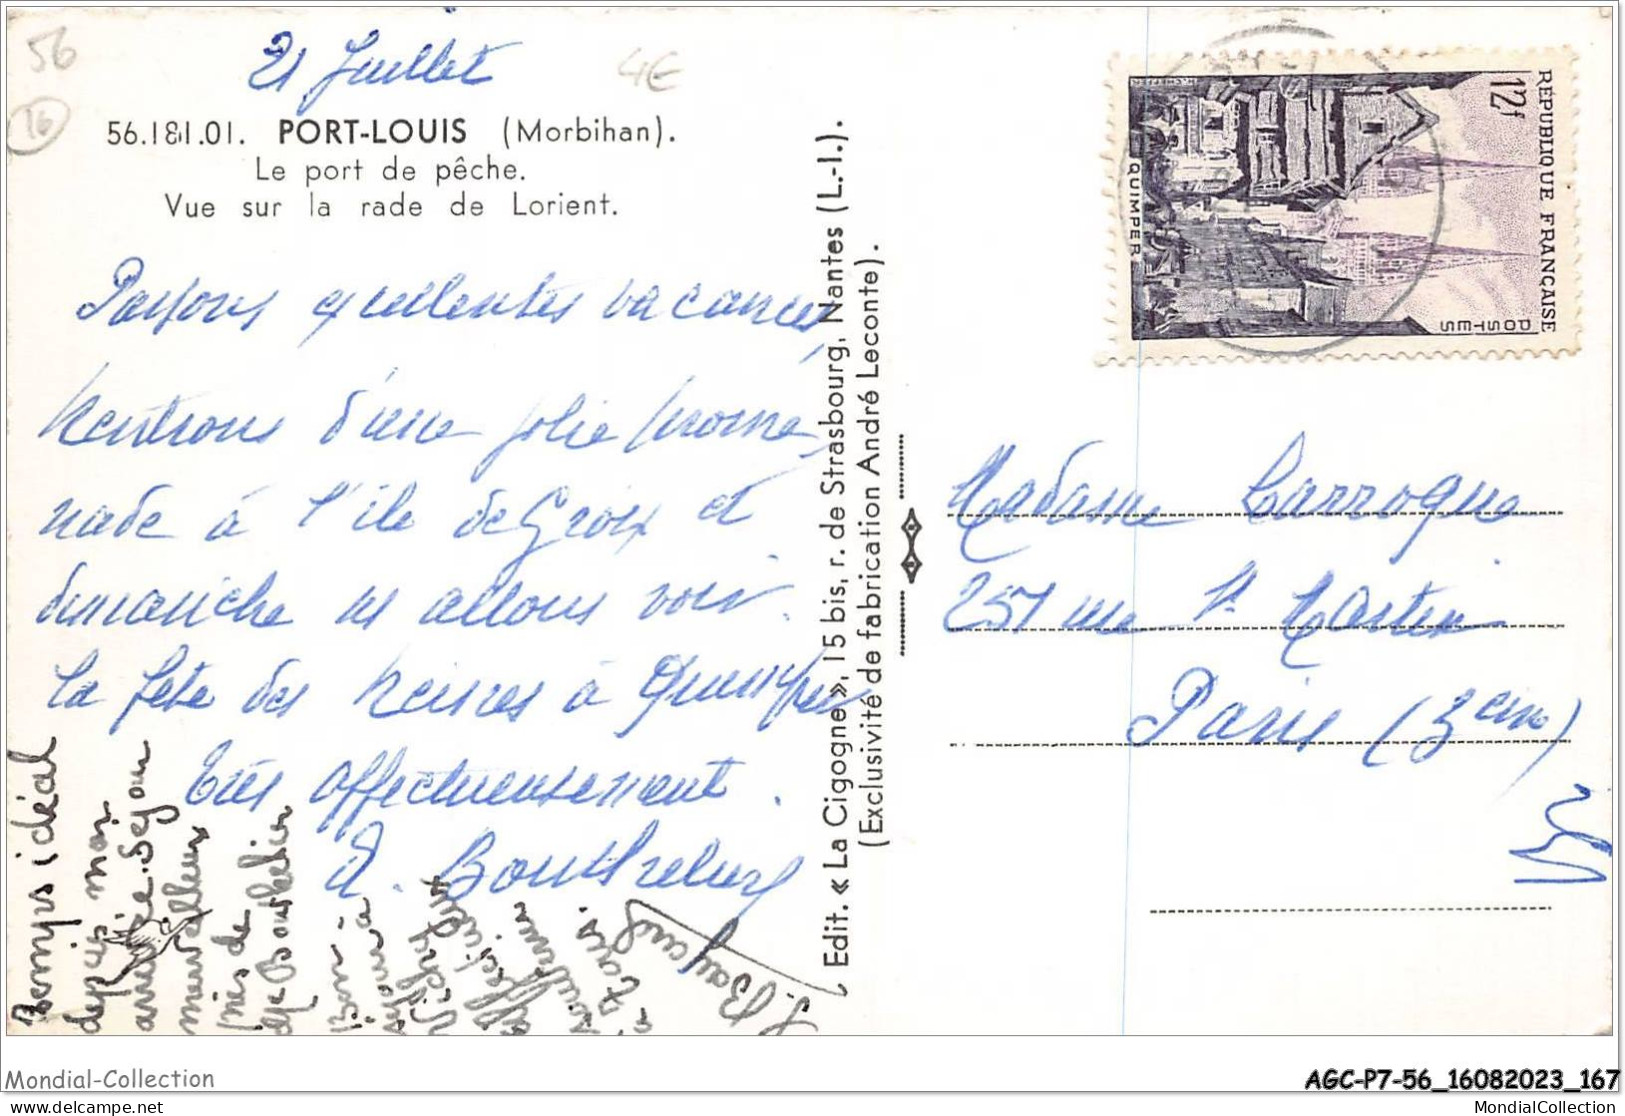 56
16
21 Juillet
4€
56.181.01. PORT-LOUIS (Morbihan).
Le port de pêche.
Vue sur la rade de Lorient.
Passons excellentes vacances
Rentrons d'une jolie prome
nade à l'ile de Groix et
dimanche ns allons voir
la fête des Reines à Quimper
très affectueusement.
Temps idéal
depuis mon
arrivée. Séjour
merveilleux
près de
Bon
séjour à
Vichy
affectueux
souvenir
à tous.
Edit. « La Cigogne », 15 bis, r. de Strasbourg, Nantes (L.-I.).
(Exclusivité de fabrication André Leconte).
RÉPUBLIQUE FRANÇAISE
12f
POSTES
QUIMPER
H. CHEFFER
Madame Larroque
257 rue St Martin
Paris (3eme)
Mondial-Collection
AGC-P7-56_16082023_167
delcampe.net
MondialCollection